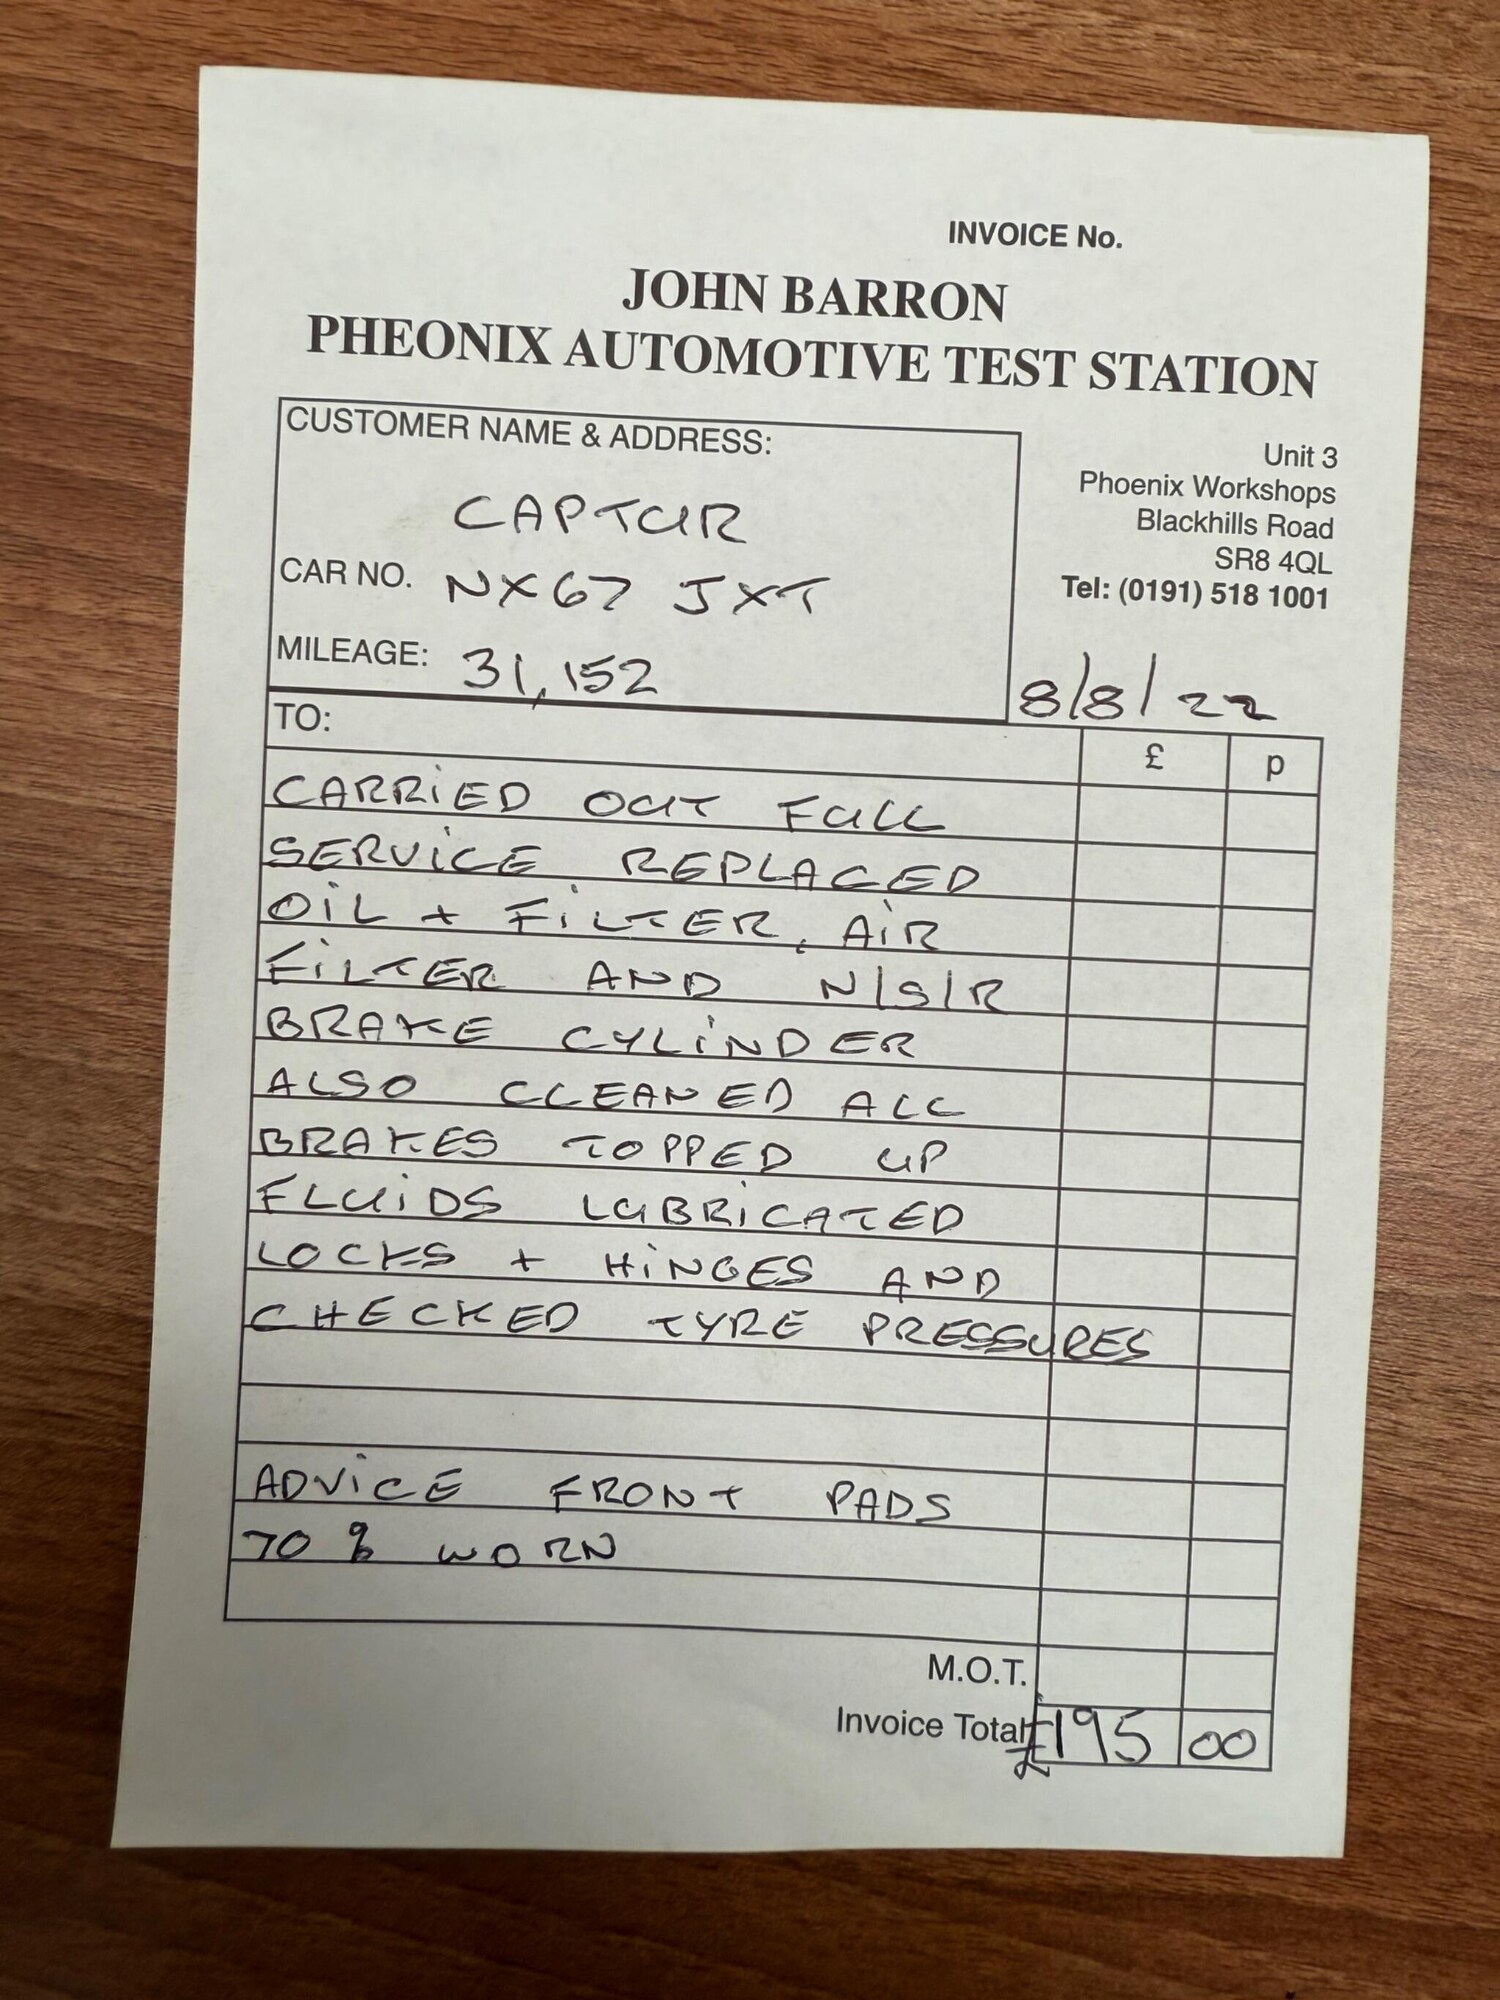 INVOICE No.
JOHN BARRON
PHEONIX AUTOMOTIVE TEST STATION
CUSTOMER NAME & ADDRESS:
CAPTUR
CAR NO. NX67 JXT
MILEAGE: 31,152
Unit 3
Phoenix Workshops
Blackhills Road
SR8 4QL
Tel: (0191) 518 1001
8/8/22
TO:
£ p
CARRIED OUT FULL
SERVICE REPLACED
OIL + FILTER, AIR
FILTER AND N/S/R
BRAKE CYLINDER
ALSO CLEANED ALL
BRAKES TOPPED UP
FLUIDS LUBRICATED
LOCKS + HINGES AND
CHECKED TYRE PRESSURES
ADVICE FRONT PADS
70 % WORN
M.O.T.
Invoice Total £ £195 00